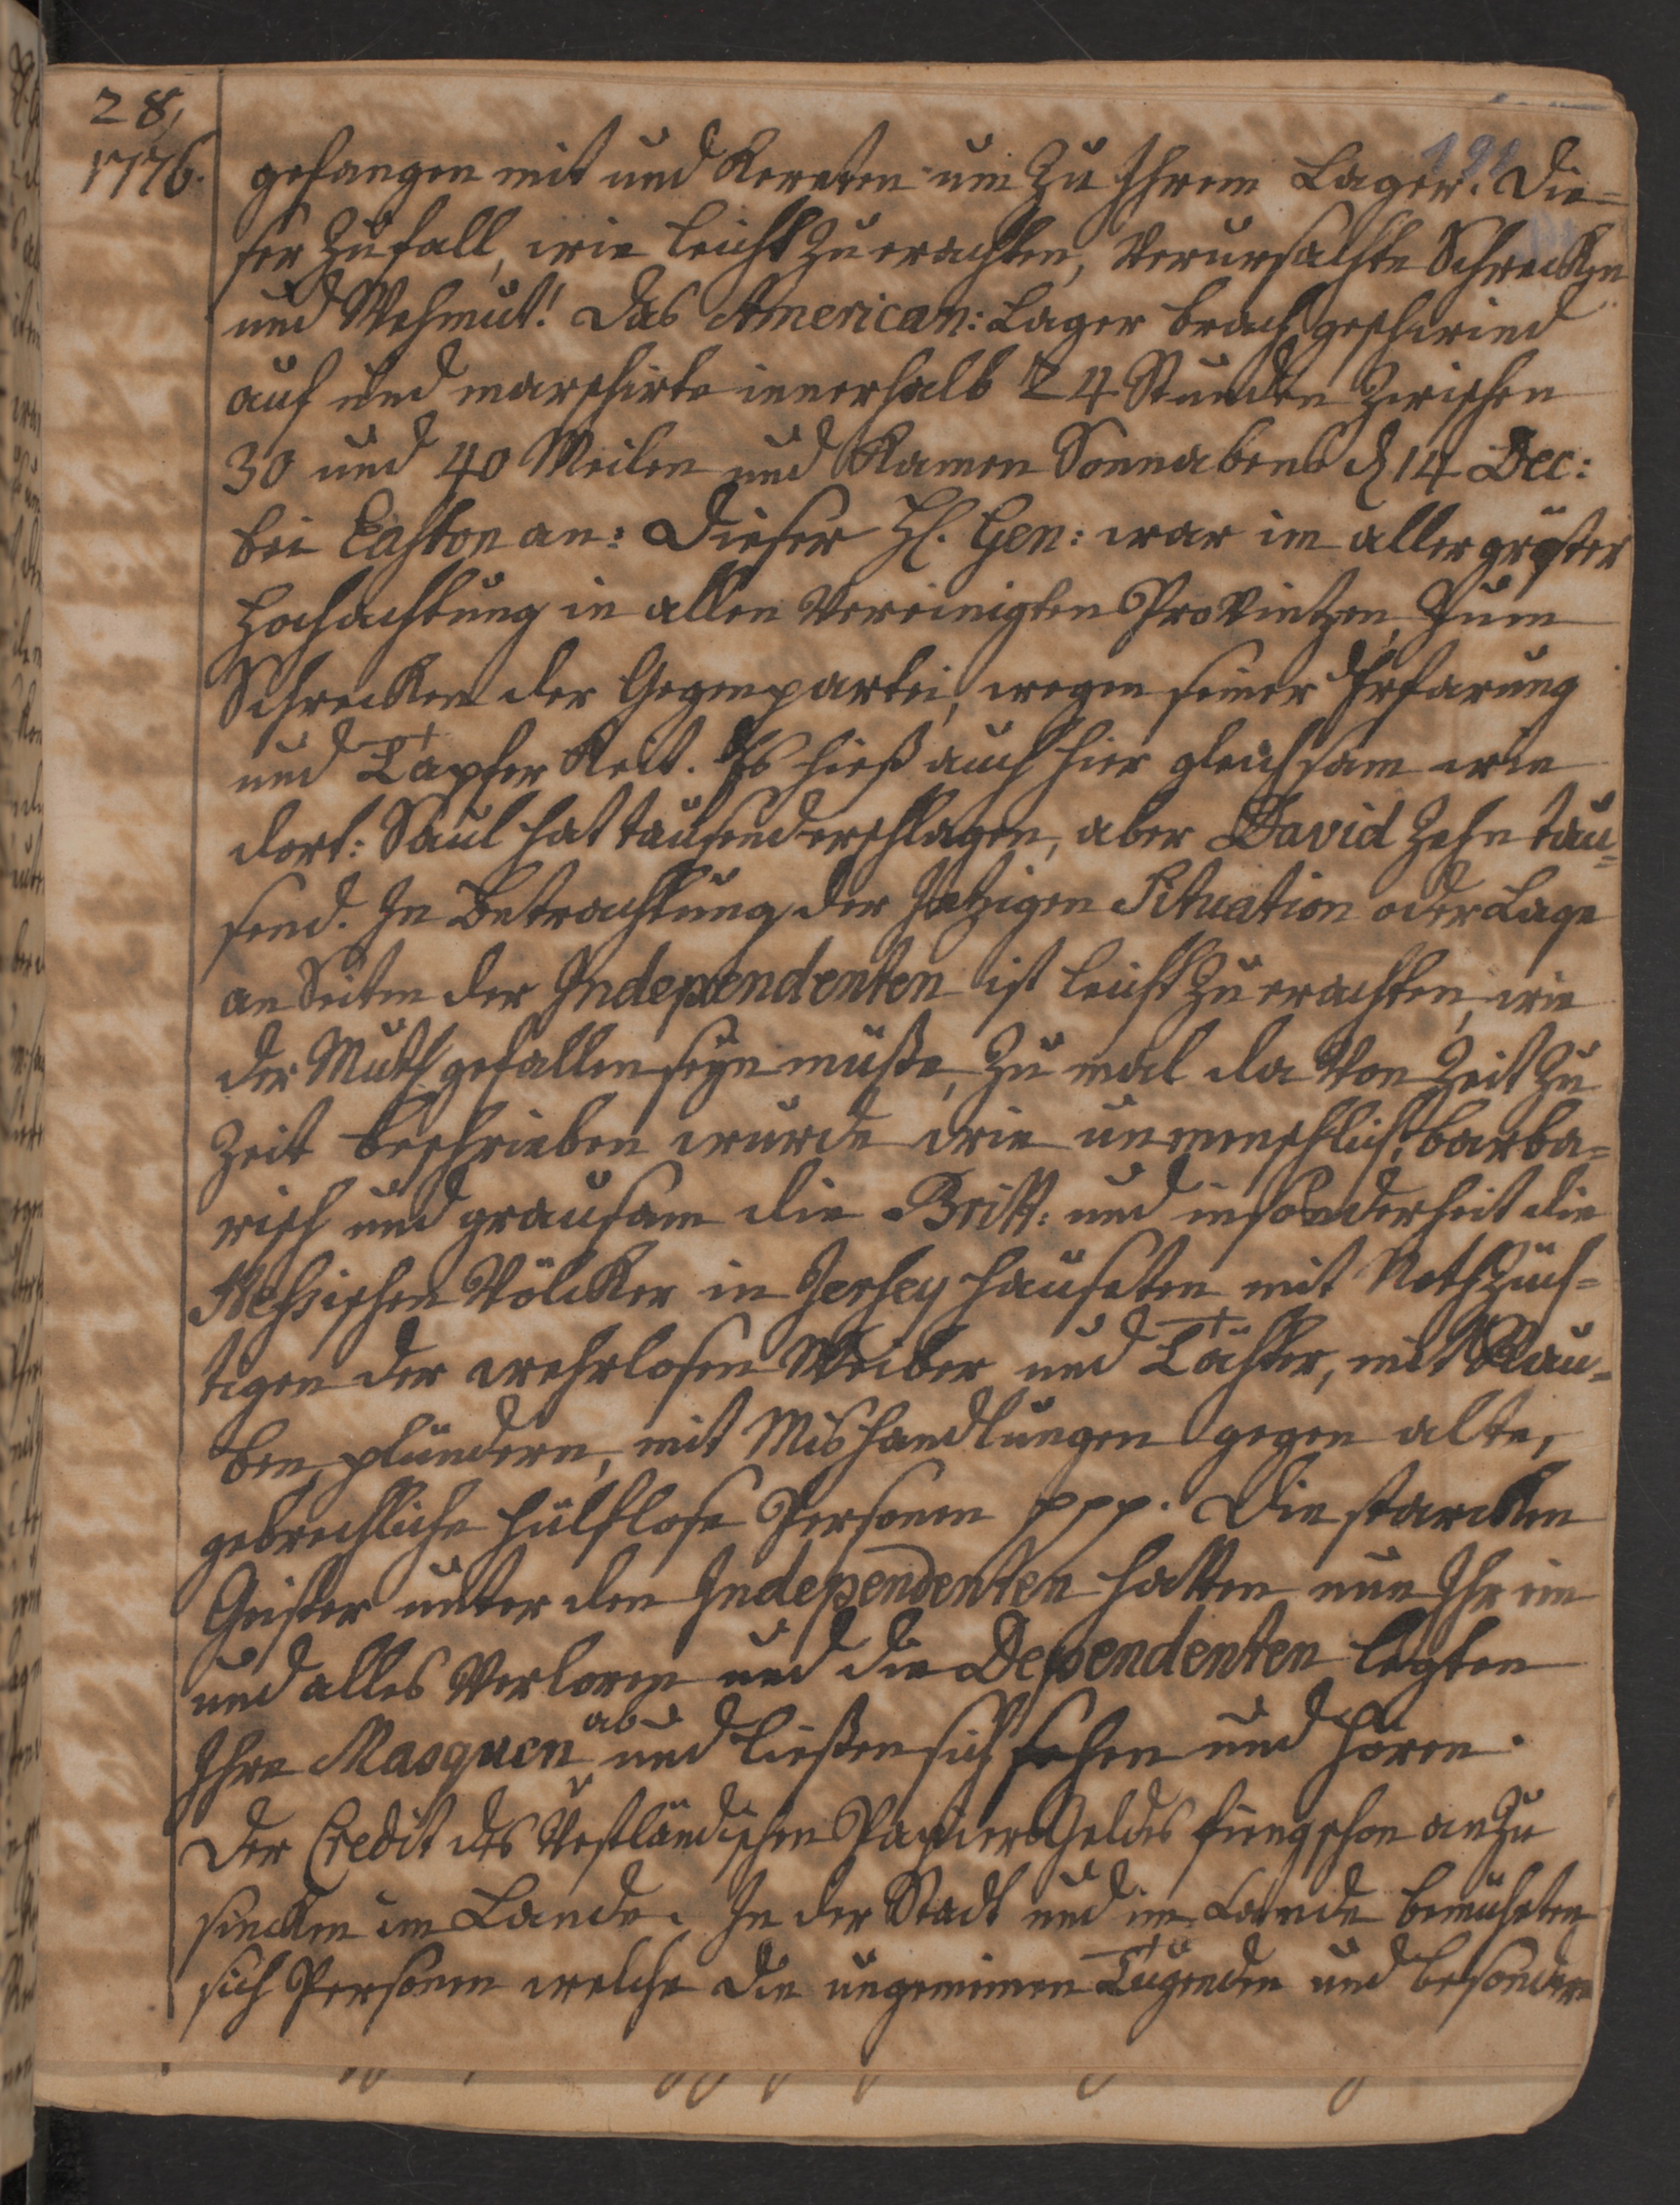 28,
1776.
191
gefangen mit und kereten um zu Ihrem Lager. Die=
ser Zufall, wie leicht zu erachten, verursachte Schrecken
und Wehmut! Das American: Lager brach geschwind
auf und marschirte innerhalb 24 Stunden zwischen
30 und 40 Meilen und kamen Sonnabend d 14 Dec:
bei Easton an: Dieser H. Gen: war im aller gröster
Hochachtung in allen vereinigten Provintzen, zum
Schrecken der Gegenpartei, wegen seiner Erfarung
und Tapferkeit. Es hieß auch hier gleichsam wie
dort: Saul hat tausend erschlagen, aber David zehn tau=
send. In Betrachtung der jetzigen Situation oder Lage
an Seiten der Independenten ist leicht zu erachten, wie
der Muth gefallen seyn müste, zu mal da von Zeit zu
Zeit beschrieben wurde wie unmenschlich, barba=
risch und grausam die Britt: und insonderheit die
Hessischen Völcker in Jersey hauseten mit Nothzüch=
tigen der wehrlosen Weiber und Töchter, mit Rau=
ben, plündern, mit Mishandlungen gegen alte,
gebrechliche hülflose Personen ppp. Die starcken
Geister unter den Independenten hatten nun Ihr im
und alles verloren und die Dependenten legten
Ihre Masquen ab und ließen sich sehen und hören.
Der Credit des Vestländischen Papier Geldes fieng schon an zu
sincken im Lande. In der Stadt und im Lande bemüheten
sich Personen welche die ungemeinen Tugenden und besondere